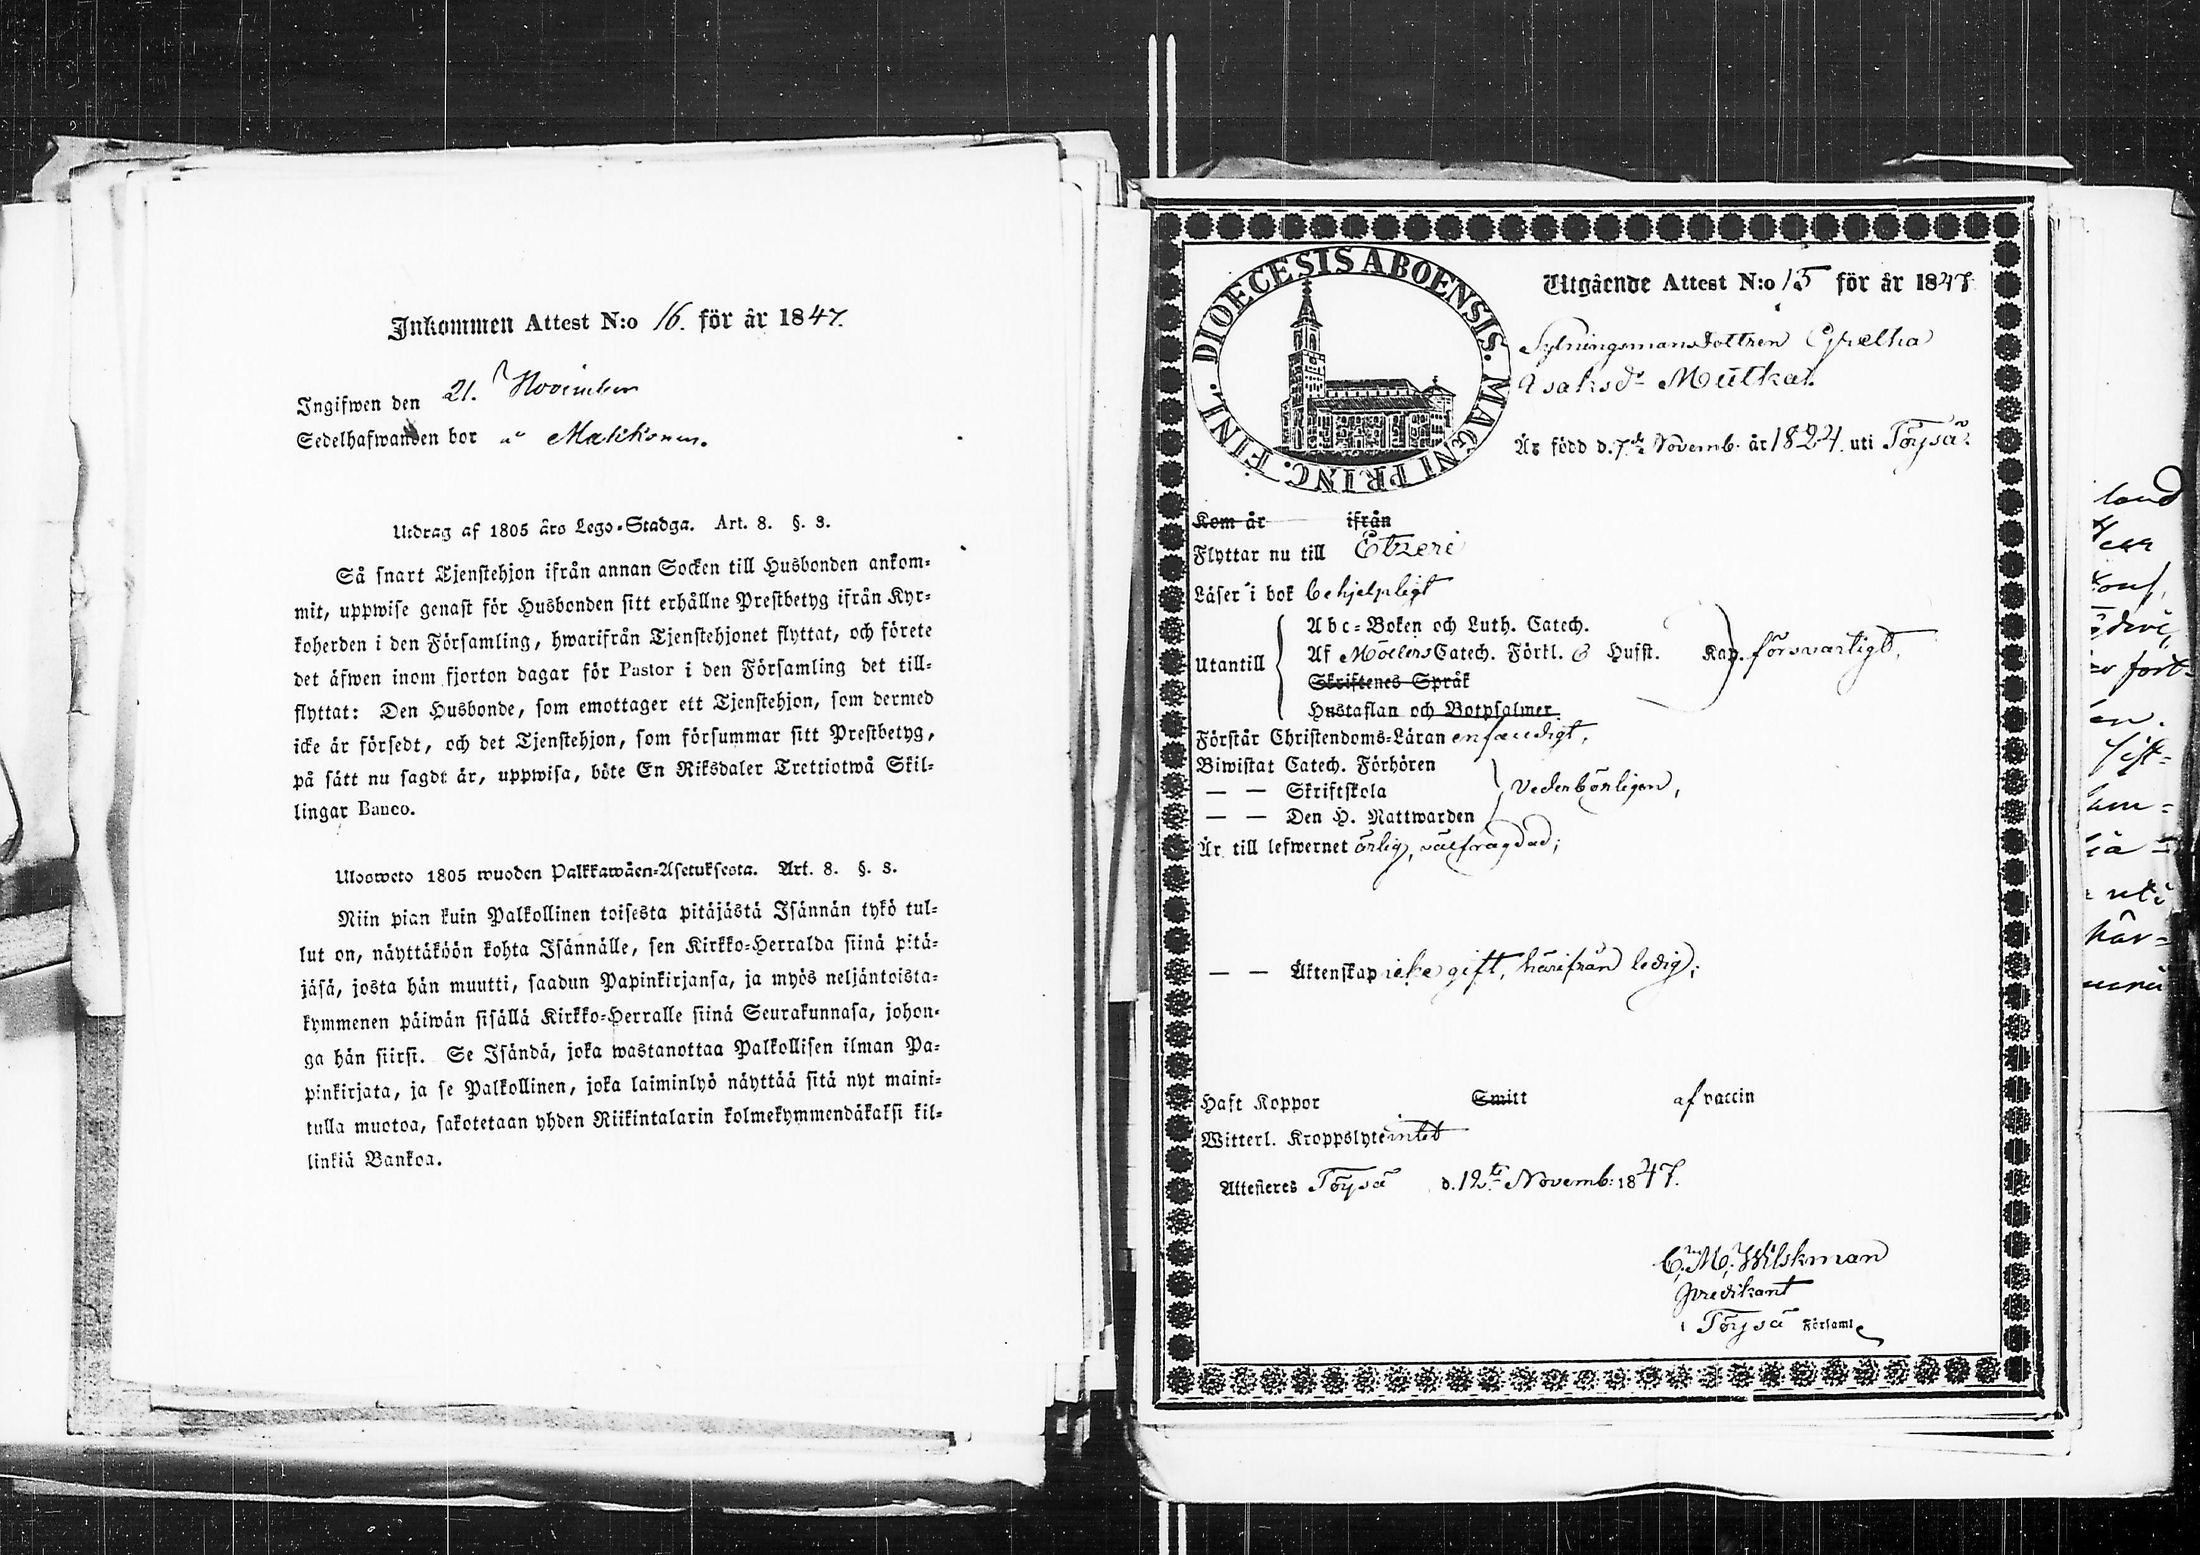 Inkommen Attest N:o 16. för år 1847.
Ingifwen den 21. November
Sedelhafwanden bor å Makkonen.
Utdrag af 1805 års Lego-Stadga. Art. 8. §. 3.
Så snart Tjenstehjon ifrån annan Socken till Husbonden ankom-
mit, uppwise genast för Husbonden sitt erhållne Prestbetyg ifrån Kyr-
koherden i den Församling, hwarifrån Tjenstehjonet flyttat, och förete
det äfwen inom fjorton dagar för Pastor i den Församling det till-
flyttat: Den Husbonde, som emottager ett Tjenstehjon, som dermed
icke är försedt, och det Tjenstehjon, som försummar sitt Prestbetyg,
på sätt nu sagdt är, uppwisa, böte En Riksdaler Trettiotwå Skil-
lingar Banco.
Ulosweto 1805 wuoden Palkkawäen-Asetuksesta. Art. 8. §. 3.
Niin pian kuin Palkollinen toisesta pitäjästä Isännän tykö tul-
lut on, näyttäköön kohta Isännälle, sen Kirkko-Herralda siinä pitä-
jäsä, josta hän muutti, saadun Papinkirjansa, ja myös neljäntoista-
kymmenen päiwän sisällä Kirkko-Herralle siinä Seurakunnasa, johon-
ga hän siirsi. Se Isändä, joka wastanottaa Palkollisen ilman Pa-
pinkirjata, ja se Palkollinen, joka laiminlyö näyttää sitä nyt maini-
tulla muotoa, sakotetaan yhden Riikintalarin kolmekymmendäkaksi kil-
linkiä Bankoa.
DIOECESIS ABOENSIS. MAGNI PRINC. FINL.
Utgående Attest N:o 15 för år 1847.
Sytningsmansdottren Gretha
Isaksdr Mutka.
Är född d. 7de Novemb. år 1824. uti Töysä.
Kom år ifrån
Flyttar nu till Etzeri
Läser i bok behjelpligt
Utantill
Abc-Boken och Luth. Catech.
Af Möllers Catech. Förkl. & Hufst. Kap. försvarligt,
Skriftenes Språk
Hustaflan och Botpsalmer.
Förstår Christendoms-Läran enfaldigt,
Biwistat Catech. Förhören
— — Skriftskola vederbörligen,
— — Den H. Nattwarden
Är till lefwernet ärlig, välfrägdad;
— — Äktenskap icke gift, härifrån ledig;
Haft Koppor Smitt af vaccin
Witterl. Kroppslyte intet
Attesteres Töysä d. 12te Novemb: 1847.
C. M. Wilskman
Predikant
i Töysä Församl
land